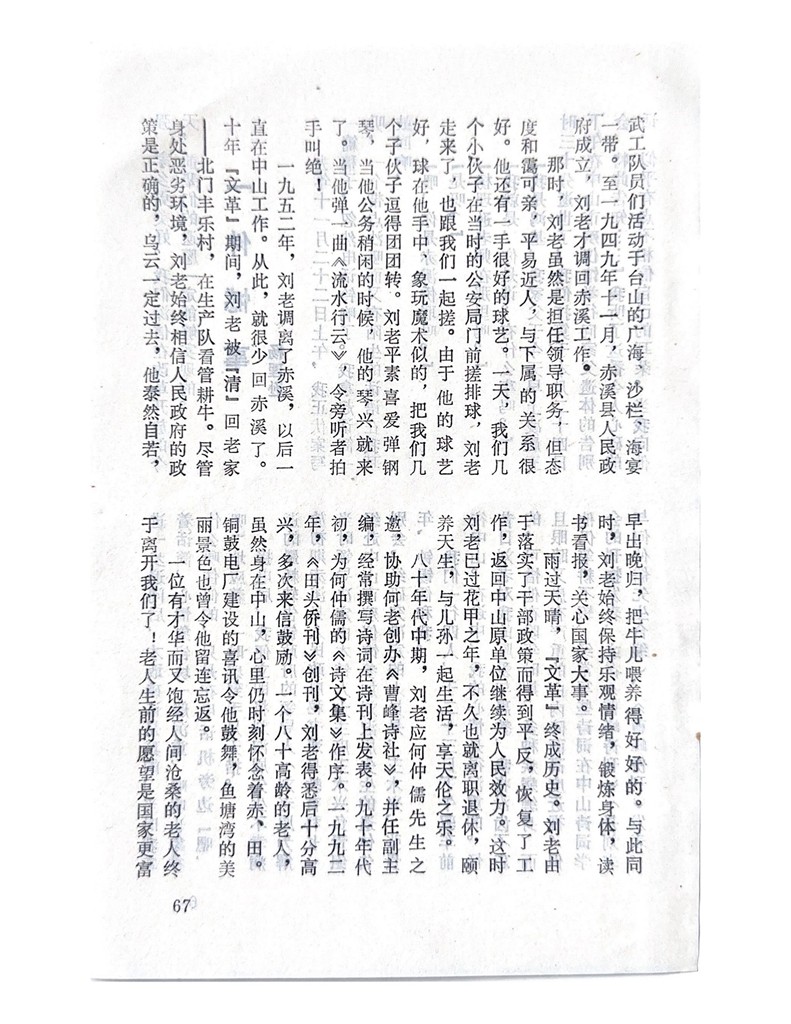 武工队员们活动于台山的广海、沙栏、海宴
一带。至一九四九年十一月，赤溪县人民政
府成立，刘老才调回赤溪工作。
那时，刘老虽然是担任领导职务，但态
度和霭可亲，平易近人，与下属的关系很
好。他还有一手很好的球艺。一天，我们几
个小伙子在当时的公安局门前搓排球，刘老
走来了，也跟我们一起搓。由于他的球艺
好，球在他手中，象玩魔术似的，把我们几
个子伙子逗得团团转。刘老平素喜爱弹钢
琴，当他公务稍闲的时候，他的琴兴就来
了。当他弹一曲《流水行云》，令旁听者拍
手叫绝！
一九五二年，刘老调离了赤溪，以后一
直在中山工作。从此，就很少回赤溪了。
十年『文革』期间，刘老被『清』回老家
——北门丰乐村，在生产队看管耕牛。尽管
身处恶劣环境，刘老始终相信人民政府的政
策是正确的，乌云一定过去，他泰然自若，
早出晚归，把牛儿喂养得好好的。与此同
时，刘老始终保持乐观情绪，锻炼身体，读
书看报，关心国家大事。
雨过天晴，『文革』终成历史。刘老由
于落实了干部政策而得到平反，恢复了工
作，返回中山原单位继续为人民效力。这时
刘老已过花甲之年，不久也就离职退休，颐
养天生，与儿孙一起生活，享天伦之乐。
八十年代中期，刘老应何仲儒先生之
邀，协助何老创办《曹峰诗社》，并任副主
编，经常撰写诗词在诗刊上发表。九十年代
初，为何仲儒的《诗文集》作序。一九九二
年，《田头侨刊》创刊，刘老得悉后十分高
兴，多次来信鼓励。一个八十高龄的老人，
虽然身在中山，心里仍时刻怀念着赤、田。
铜鼓电厂建设的喜讯令他鼓舞，鱼塘湾的美
丽景色也曾令他留连忘返。
一位有才华而又饱经人间沧桑的老人终
于离开我们了！老人生前的愿望是国家更富
67